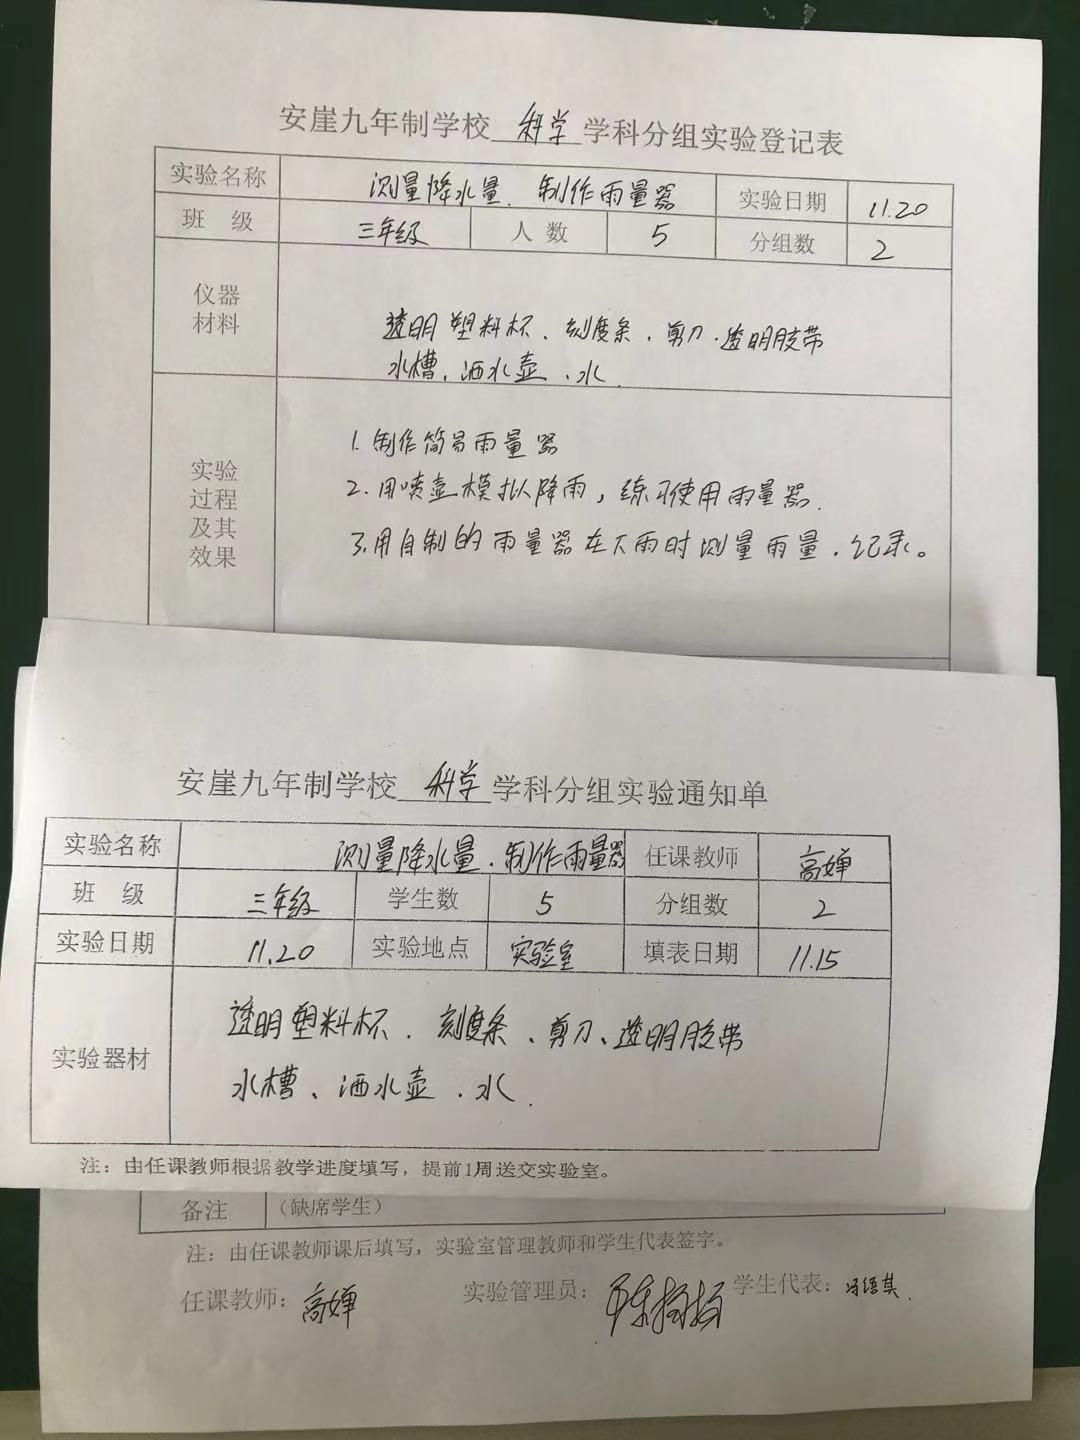 安崖九年制学校 科学 学科分组实验登记表
实验名称 测量降水量、制作雨量器 实验日期 11.20
班 级 三年级 人 数 5 分组数 2
仪器
材料
透明塑料杯、刻度条、剪刀、透明胶带
水槽、洒水壶、水.
实验
过程
及其
效果
1.制作简易雨量器
2.用喷壶模拟降雨,练习使用雨量器.
3.用自制的雨量器在下雨时测量雨量、纪录。
安崖九年制学校 科学 学科分组实验通知单
实验名称 测量降水量、制作雨量器 任课教师 高婵
班 级 三年级 学生数 5 分组数 2
实验日期 11.20 实验地点 实验室 填表日期 11.15
实验器材
透明塑料杯、刻度条、剪刀、透明胶带
水槽、洒水壶、水.
注:由任课教师根据教学进度填写,提前1周送交实验室。
备注 (缺席学生)
注:由任课教师课后填写,实验室管理教师和学生代表签字。
任课教师:高婵 实验管理员: 学生代表:冯语其.